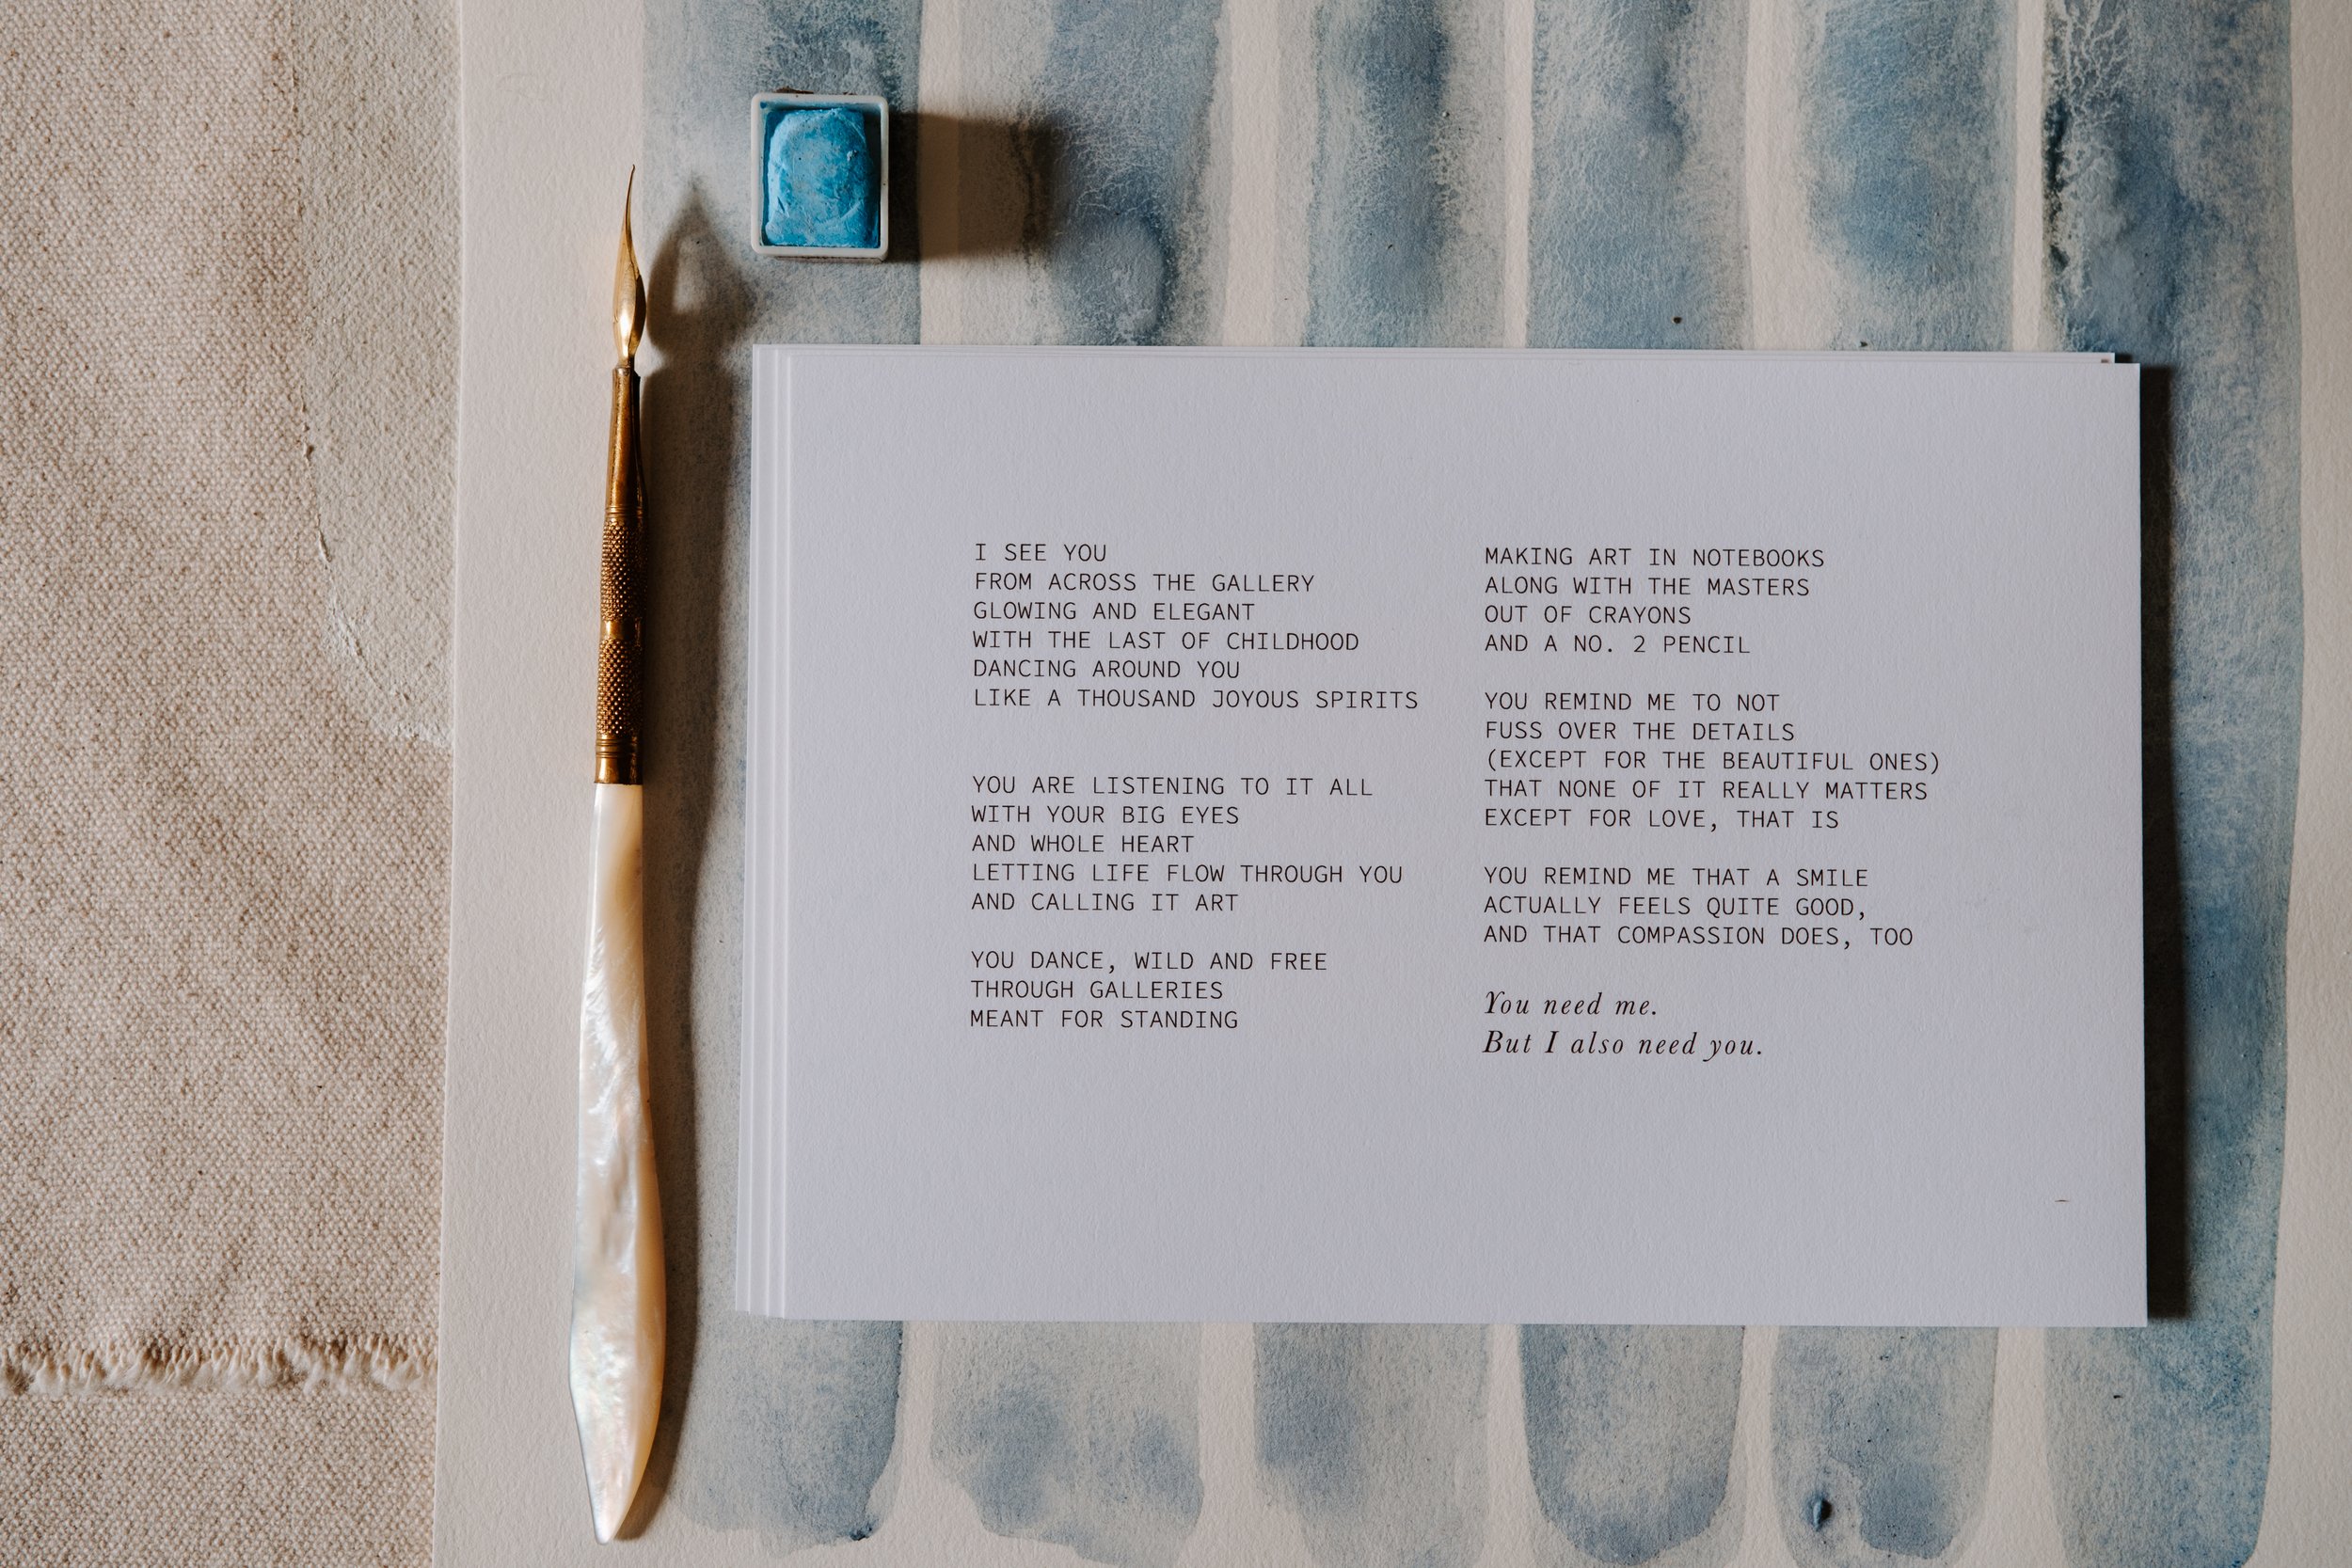 I SEE YOU
FROM ACROSS THE GALLERY
GLOWING AND ELEGANT
WITH THE LAST OF CHILDHOOD
DANCING AROUND YOU
LIKE A THOUSAND JOYOUS SPIRITS
YOU ARE LISTENING TO IT ALL
WITH YOUR BIG EYES
AND WHOLE HEART
LETTING LIFE FLOW THROUGH YOU
AND CALLING IT ART
YOU DANCE, WILD AND FREE
THROUGH GALLERIES
MEANT FOR STANDING
MAKING ART IN NOTEBOOKS
ALONG WITH THE MASTERS
OUT OF CRAYONS
AND A NO. 2 PENCIL
YOU REMIND ME TO NOT
FUSS OVER THE DETAILS
(EXCEPT FOR THE BEAUTIFUL ONES)
THAT NONE OF IT REALLY MATTERS
EXCEPT FOR LOVE, THAT IS
YOU REMIND ME THAT A SMILE
ACTUALLY FEELS QUITE GOOD,
AND THAT COMPASSION DOES, TOO
You need me.
But I also need you.